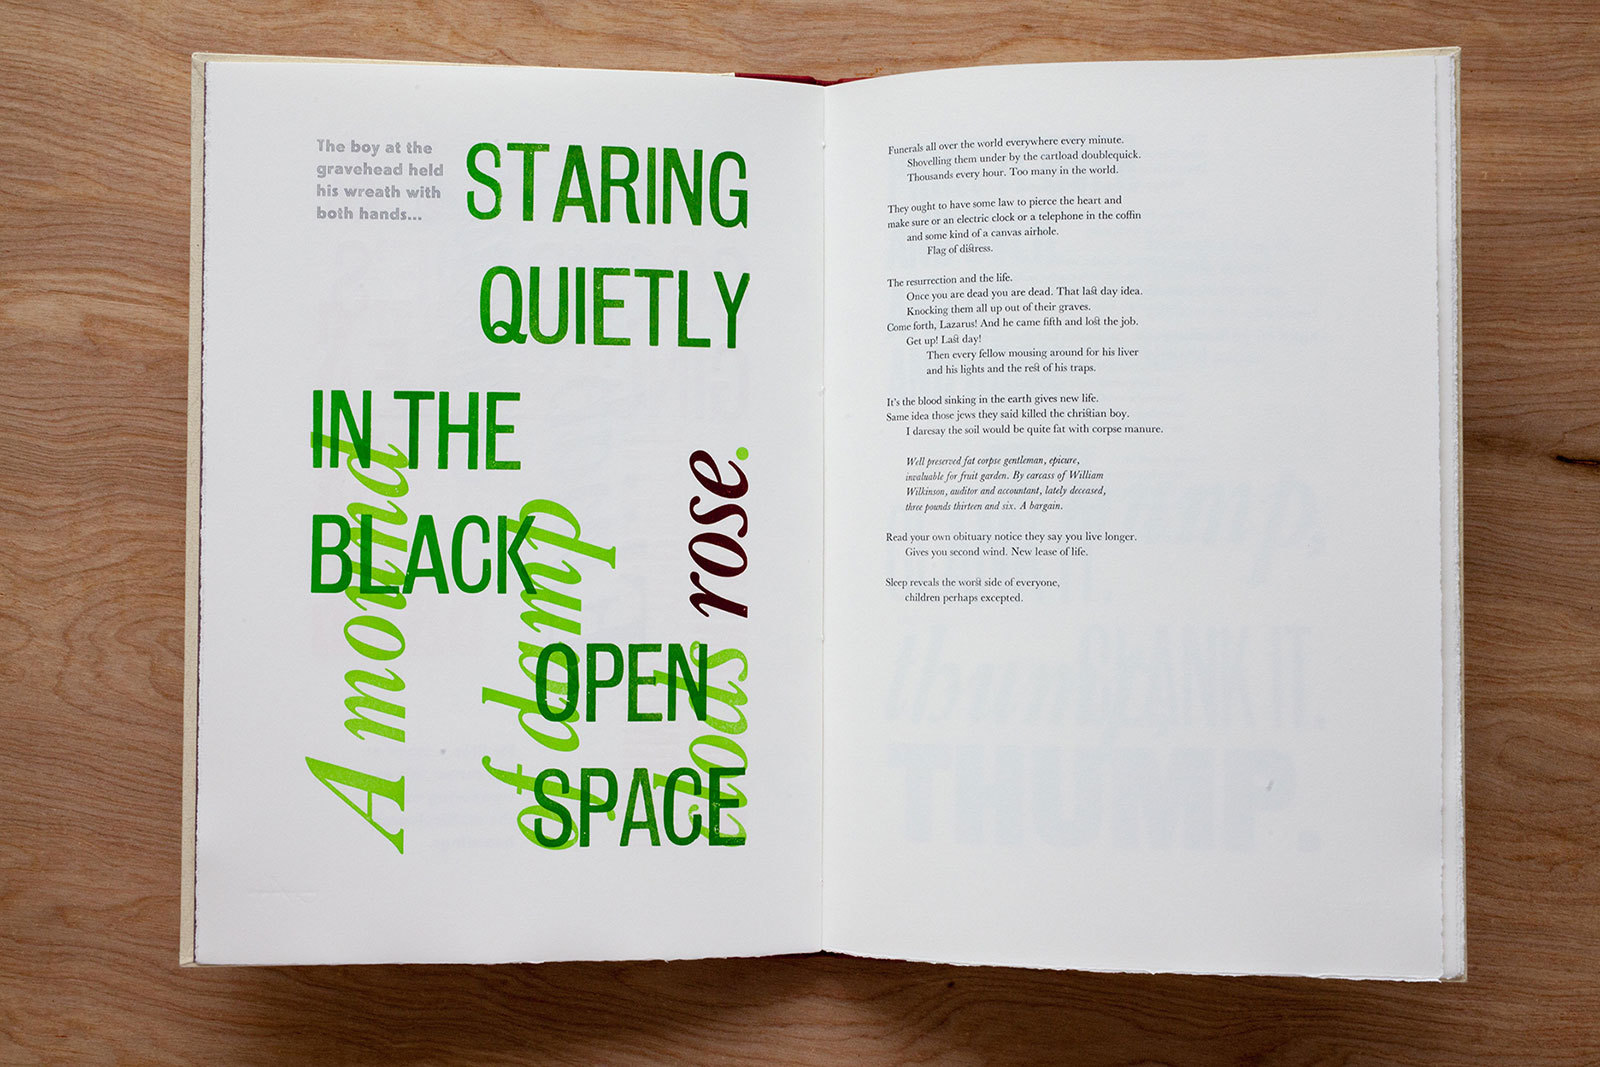 The boy at the
gravehead held
his wreath with
both hands...
STARING
QUIETLY
IN THE
BLACK
OPEN
SPACE
A mound
of damp
clods rose.
Funerals all over the world everywhere every minute.
Shovelling them under by the cartload doublequick.
Thousands every hour. Too many in the world.
They ought to have some law to pierce the heart and
make sure or an electric clock or a telephone in the coffin
and some kind of a canvas airhole.
Flag of distress.
The resurrection and the life.
Once you are dead you are dead. That last day idea.
Knocking them all up out of their graves.
Come forth, Lazarus! And he came fifth and lost the job.
Get up! Last day!
Then every fellow mousing around for his liver
and his lights and the rest of his traps.
It's the blood sinking in the earth gives new life.
Same idea those jews they said killed the christian boy.
I daresay the soil would be quite fat with corpse manure.
Well preserved fat corpse gentleman, epicure,
invaluable for fruit garden. By carcass of William
Wilkinson, auditor and accountant, lately deceased,
three pounds thirteen and six. A bargain.
Read your own obituary notice they say you live longer.
Gives you second wind. New lease of life.
Sleep reveals the worst side of everyone,
children perhaps excepted.